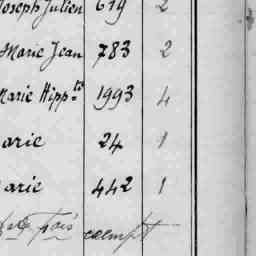 Joseph Julien 619 2
Marie Jean 783 2
Marie Hippte 1993 4
arie 24 1
arie 442 1
fois exempt